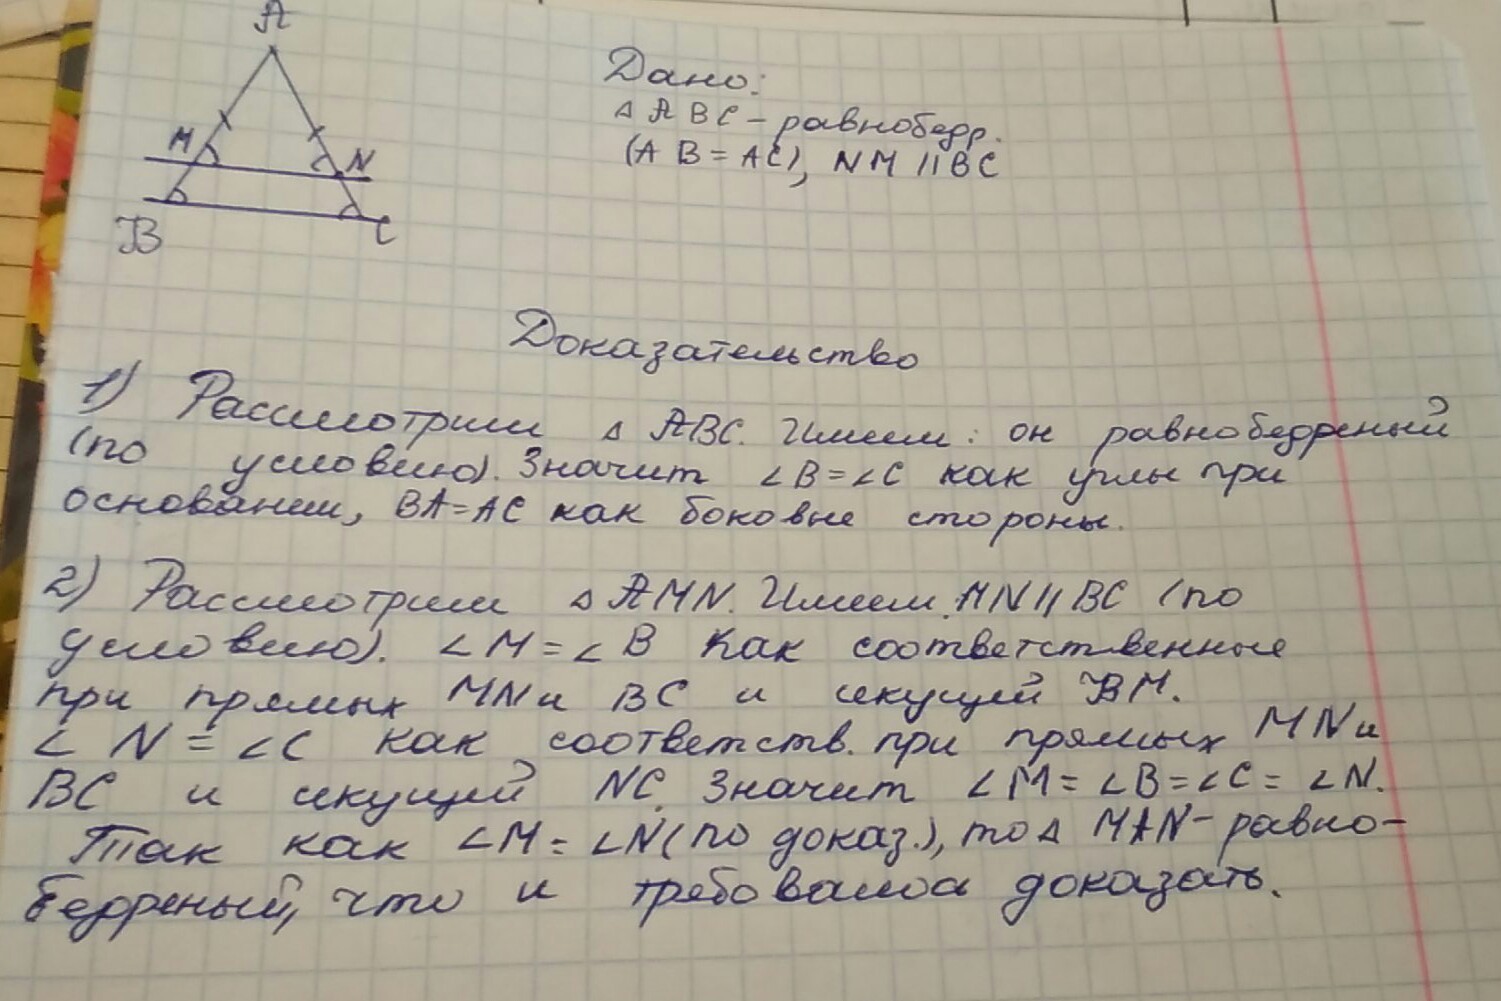 A
M
N
B
C
Дано:
△ ABC - равнобедр.
(AB = AC), NM || BC
Доказательство
1) Рассмотрим △ ABC. Имеем: он равнобедреный
(по условию). Значит ∠B=∠C как углы при
основании, BA=AC как боковые стороны.
2) Рассмотрим △ AMN. Имеем. MN || BC (по
условию). ∠M=∠B как соответственные
при прямых MN и BC и секущей BM.
∠N=∠C как соответств. при прямых MN и
BC и секущей NC. Значит ∠M=∠B=∠C=∠N.
Так как ∠M=∠N (по доказ.), то △ MAN - равно-
бедреный, что и требовалоа доказать.